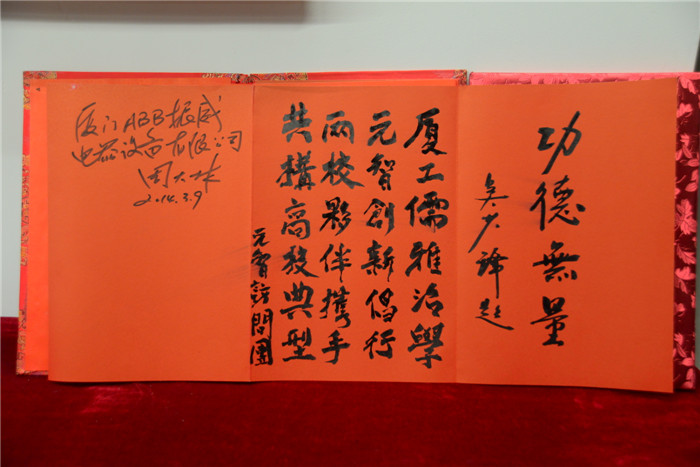 功德無量
題
厦工儒雅治學
元智創新倡行
兩校夥伴攜手
共構高教典型
元智訪問團
厦门ABB振威
电器设备有限公司
周大林
2014.3.9